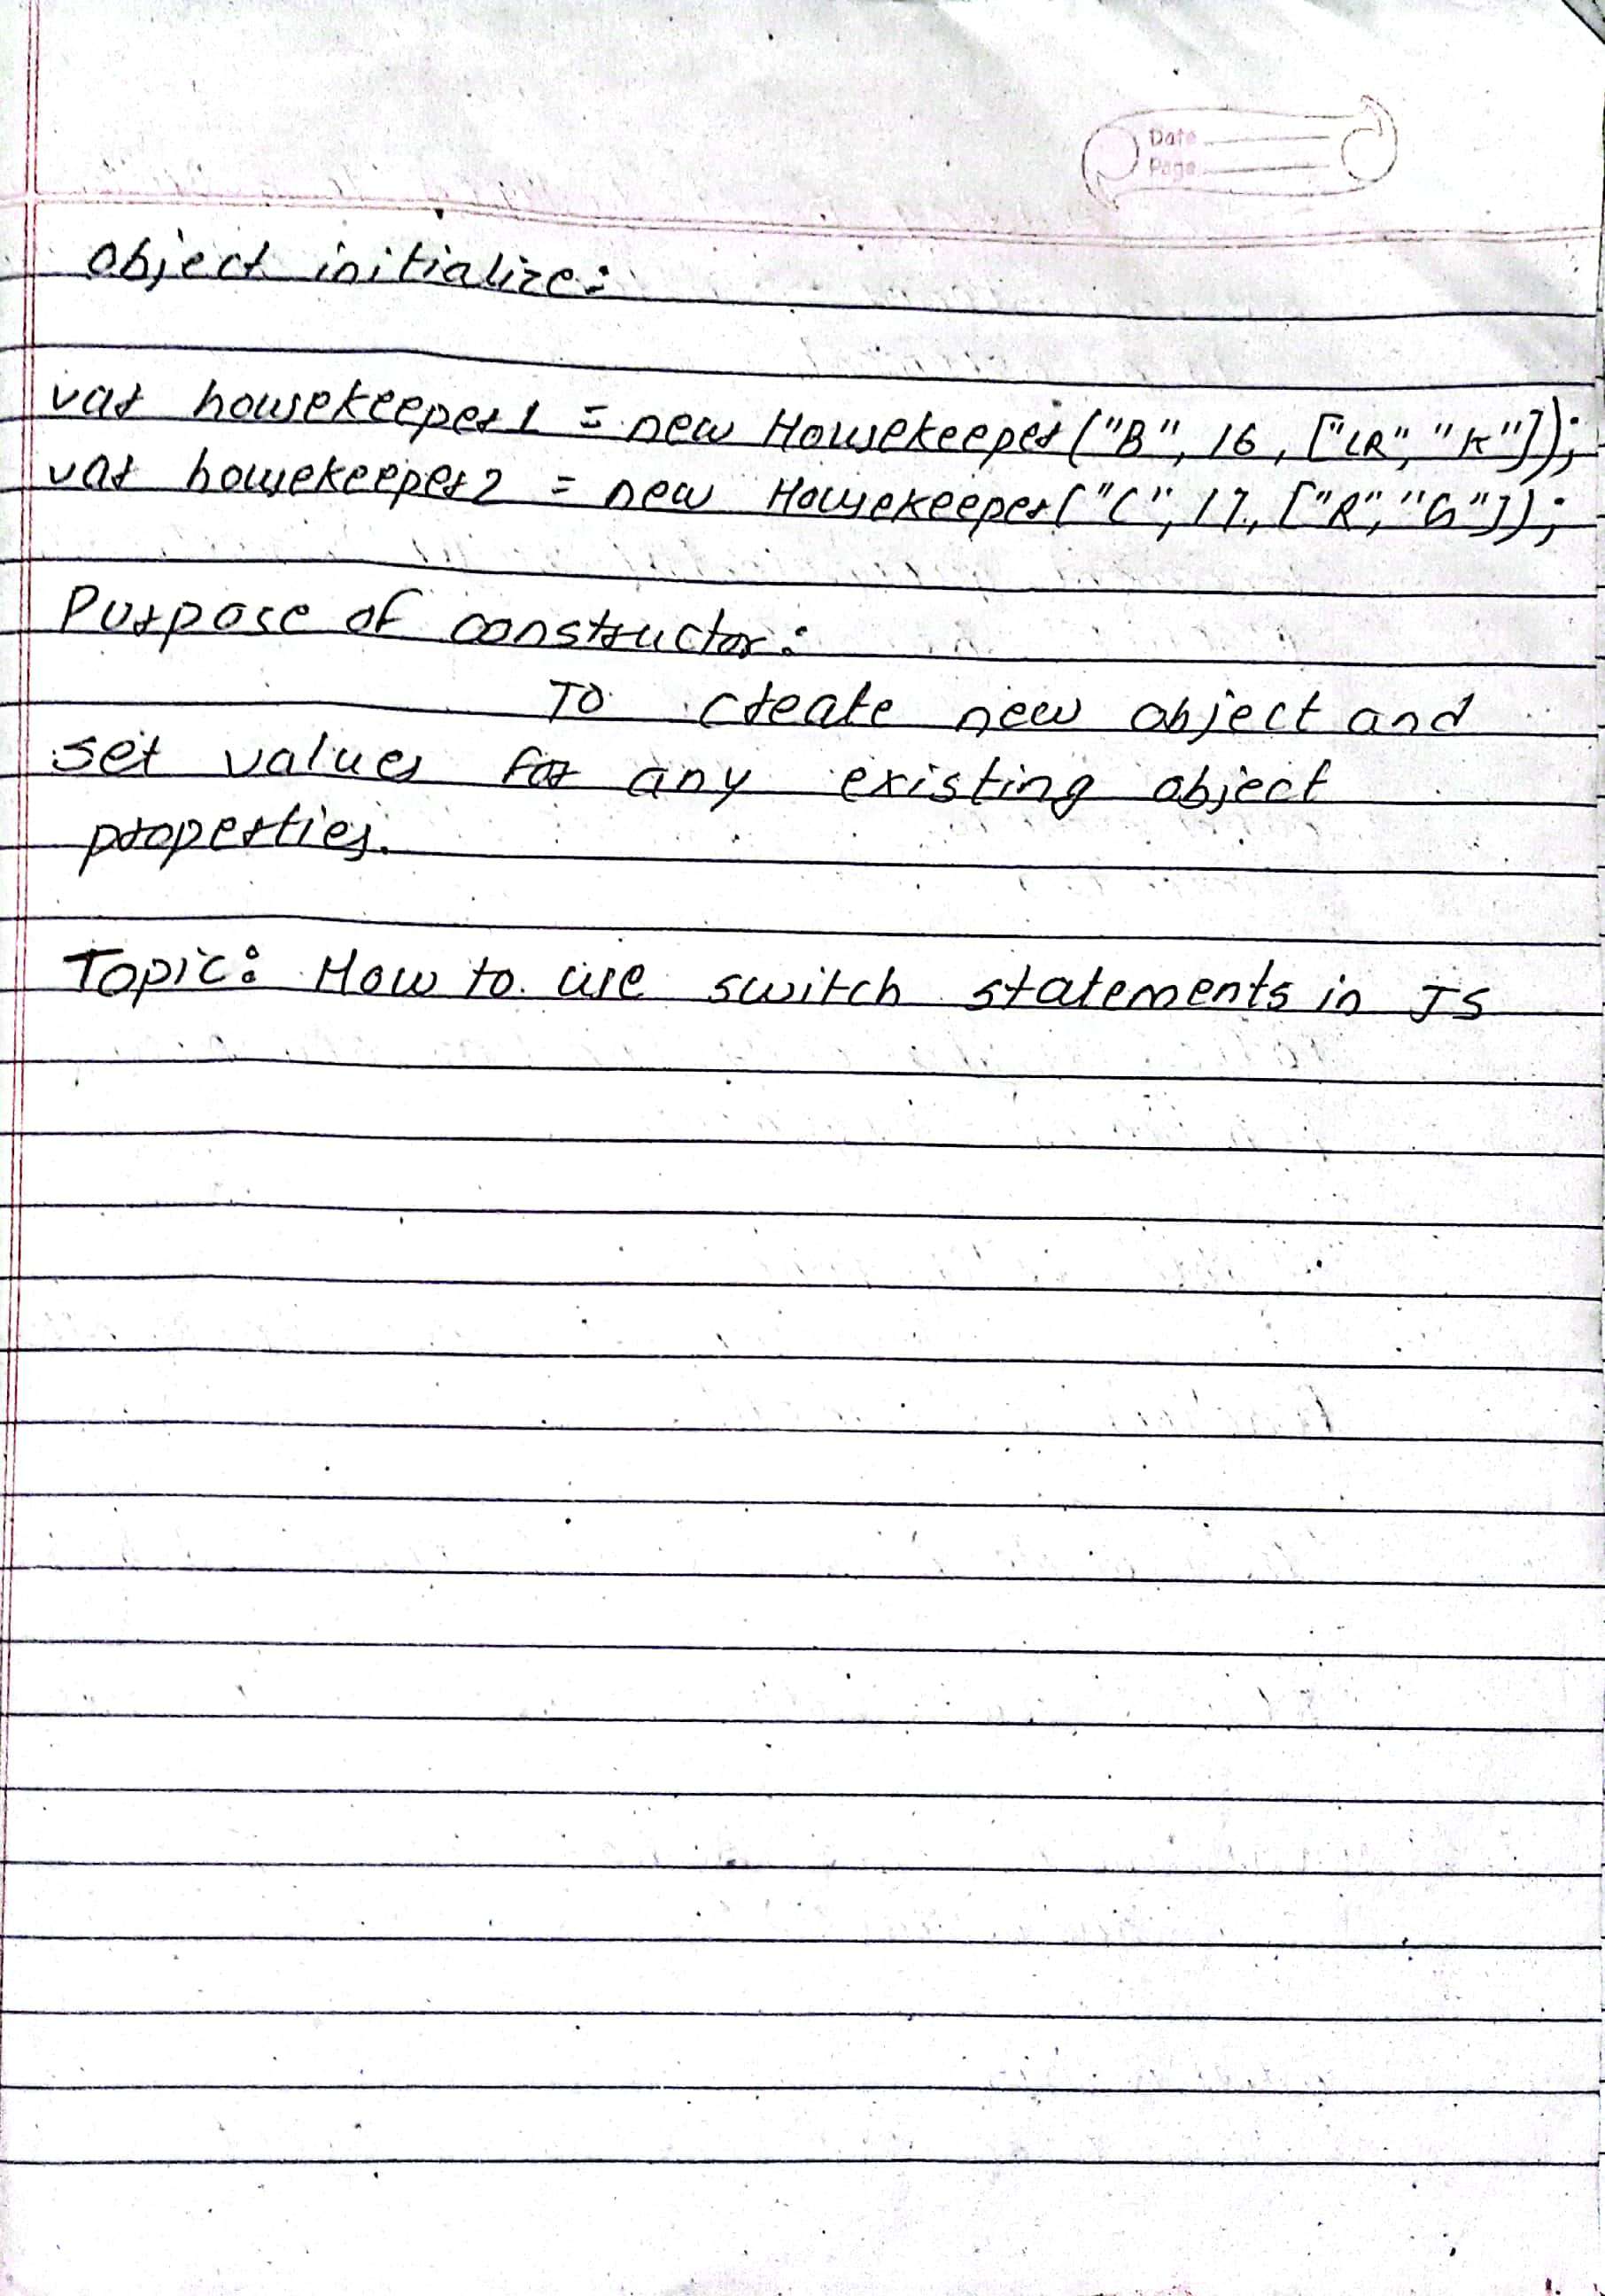 Date
Page
object initialize:
var housekeeper1 = new Housekeeper("B", 16, ["LR", "K"]);
var housekeeper2 = new Housekeeper("C", 17, ["R", "G"]);
Purpose of constructor:
To create new object and
set values for any existing object
properties.
Topic: How to use switch statements in JS